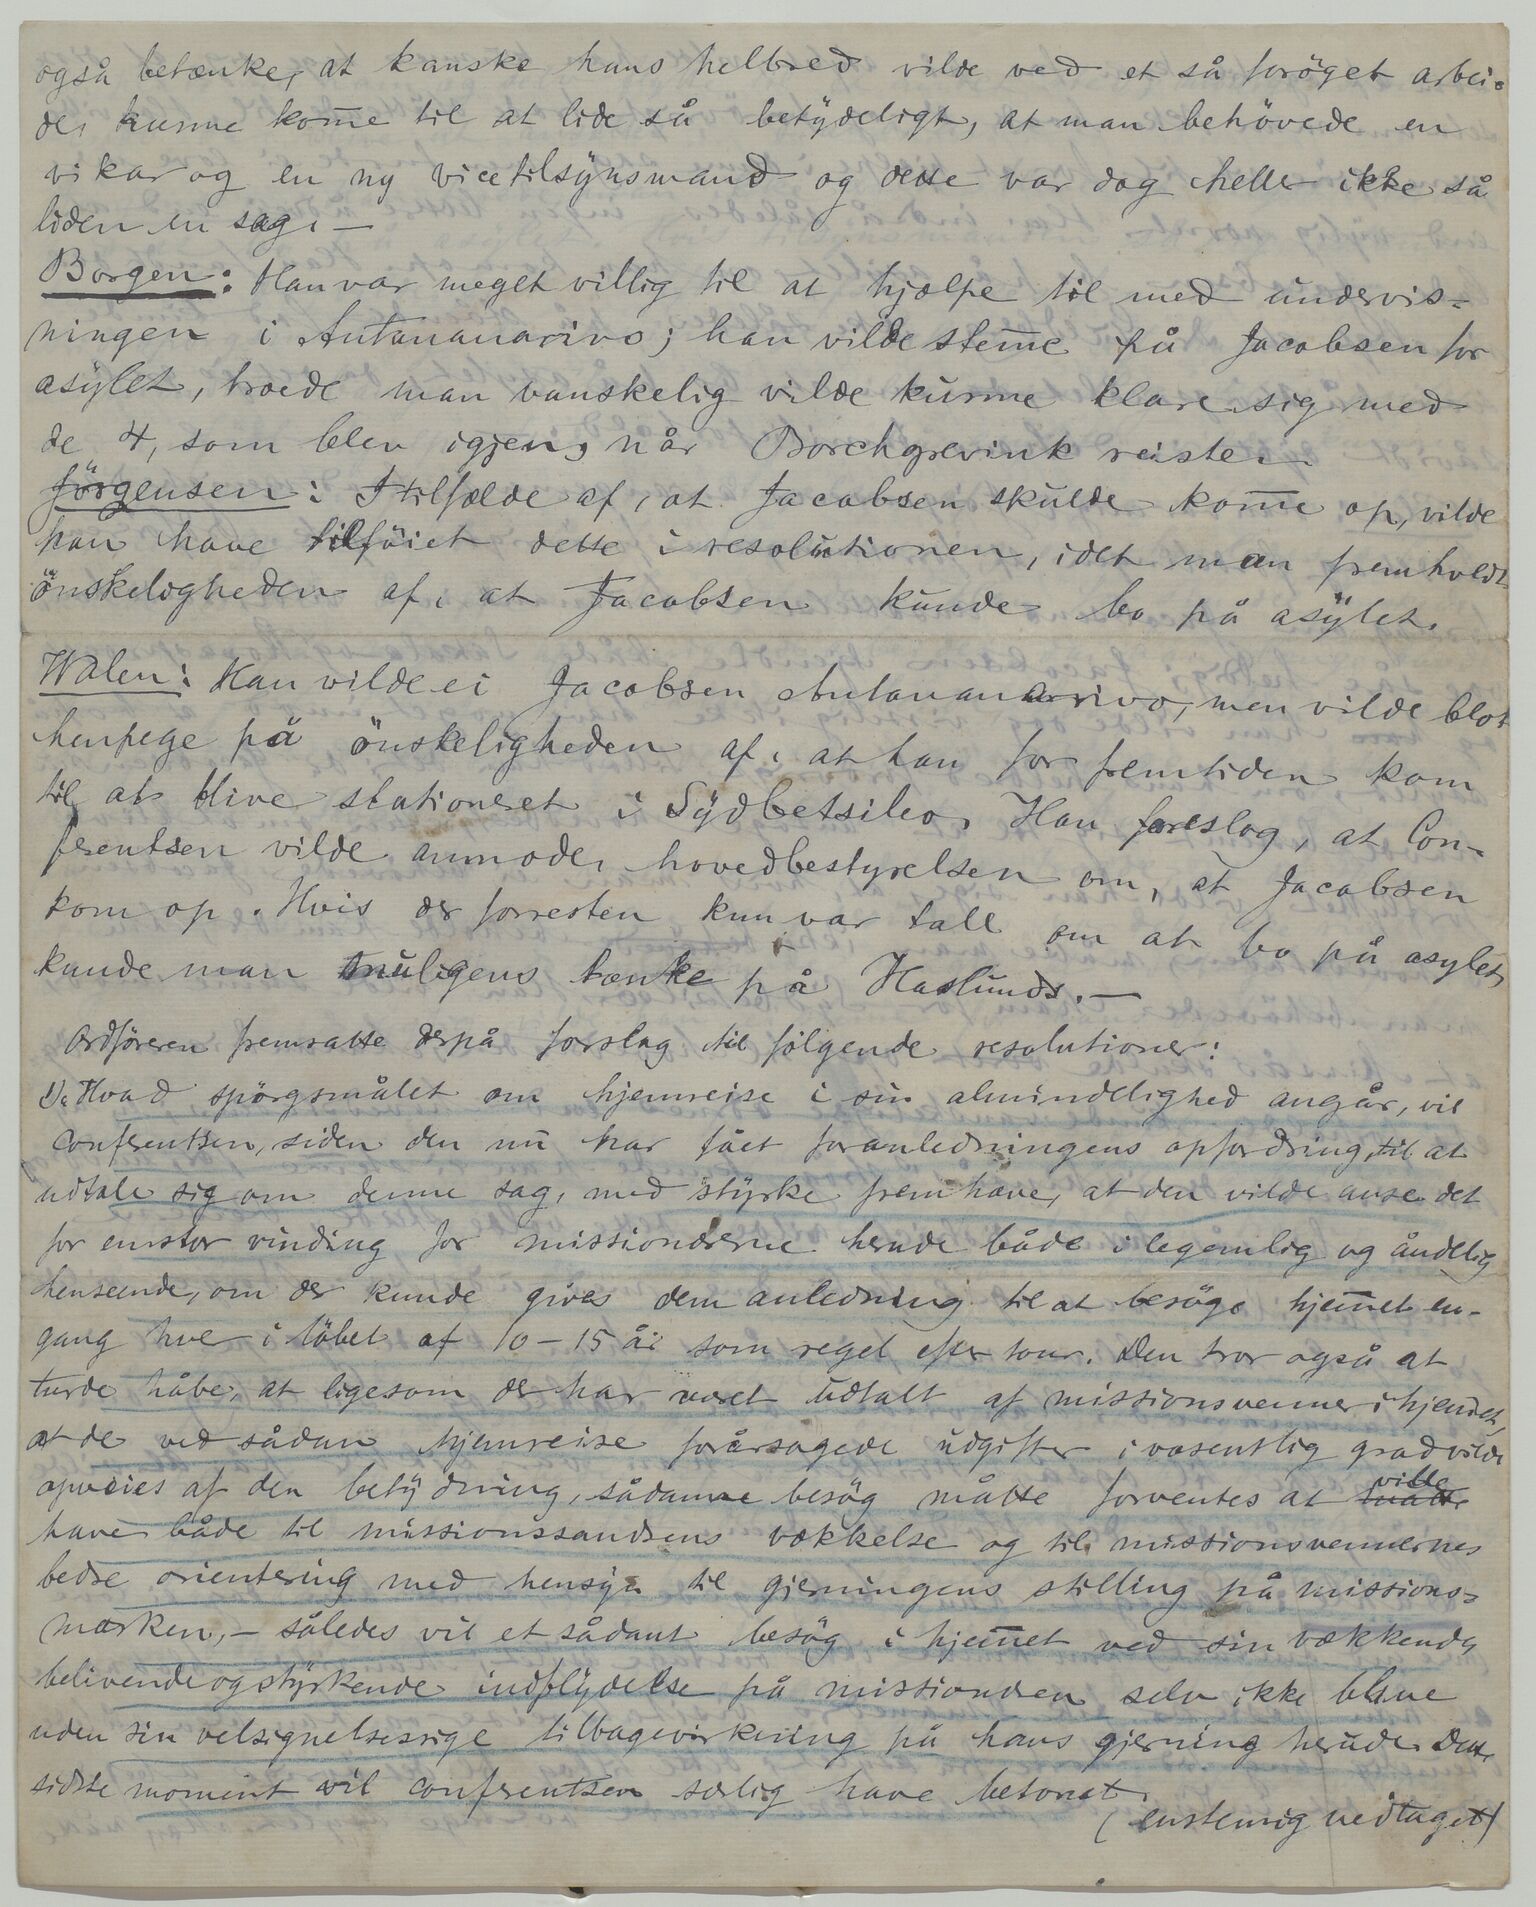 også betænke, at kanske hans helbred vilde ved et så forøget arbei-
de, kunne kom̅e til at lide så betydeligt, at man behövede en
vikar og en ny vicetilsynsmand og dette var dog heller ikke så
liden en sag. —
Borgen: Han var meget villig til at hjælpe til med undervis-
ningen i Antananarivo; han vilde stem̅e på Jacobsen for
asylet, troede man vanskelig vilde kunne klare sig med
de 4, som blev igjen, når Borchgrevink reiste.
Jörgensen: I tilfælde af, at Jacobsen skulde kom̅e op, vilde
han have tilföiet dette i resolutionen, idet man fremholdt
önskeligheden af, at Jacobsen kunde bo på asylet.
Walen: Han vilde ei Jacobsen Antananarivo, men vilde blot
henpege på önskeligheden af, at han for fremtiden kom
til at blive stationeret i Sydbetsileo. Han foreslog, at Con-
ferentsen vilde anmode, hovedbestyrelsen om, at Jacobsen
kom op. Hvis der forresten kun var tale om at bo på asylet,
kunde man muligens tænke på Haslunds. —
Ordföreren fremsatte derpå forslag til fölgende resolutioner:
1). Hvad spörgsmålet om hjemreise i sin almindelighed angår, vil
Conferentsen, siden den nu har fået foranledningens opfordring, til at
udtale sig om denne sag, med styrke fremhæve, at den vilde anse det
for en stor vinding for missionærerne herude både i legemlig og åndelig
henseende, om der kunde gives dem anledning til at besöge hjem̅et en-
gang hver i löbet af 10 – 15 år som regel efter tour. Den tror også at
turde håbe, at ligesom der har været udtalt af missionsvenner i hjem̅et,
at de ved sådan hjemreise forårsagede udgifter i væsentlig grad vilde
opveies af den betydning, sådanne besög måtte forventes at måtte vilde
have både til missionssandsens vækkelse og til missionsvennernes
bedre orientering med hensyn til gjerningens stilling på missions-
marken, – således vil et sådant besög i hjem̅et ved sin vækkende,
belivende og styrkende indflydelse på missionæren selv ikke blive
uden sin velsignelsesrige tilbagevirkning på hans gjerning herude. Dette
sidste moment vil conferentsen særlig have betonet.
(enstemig vedtaget)